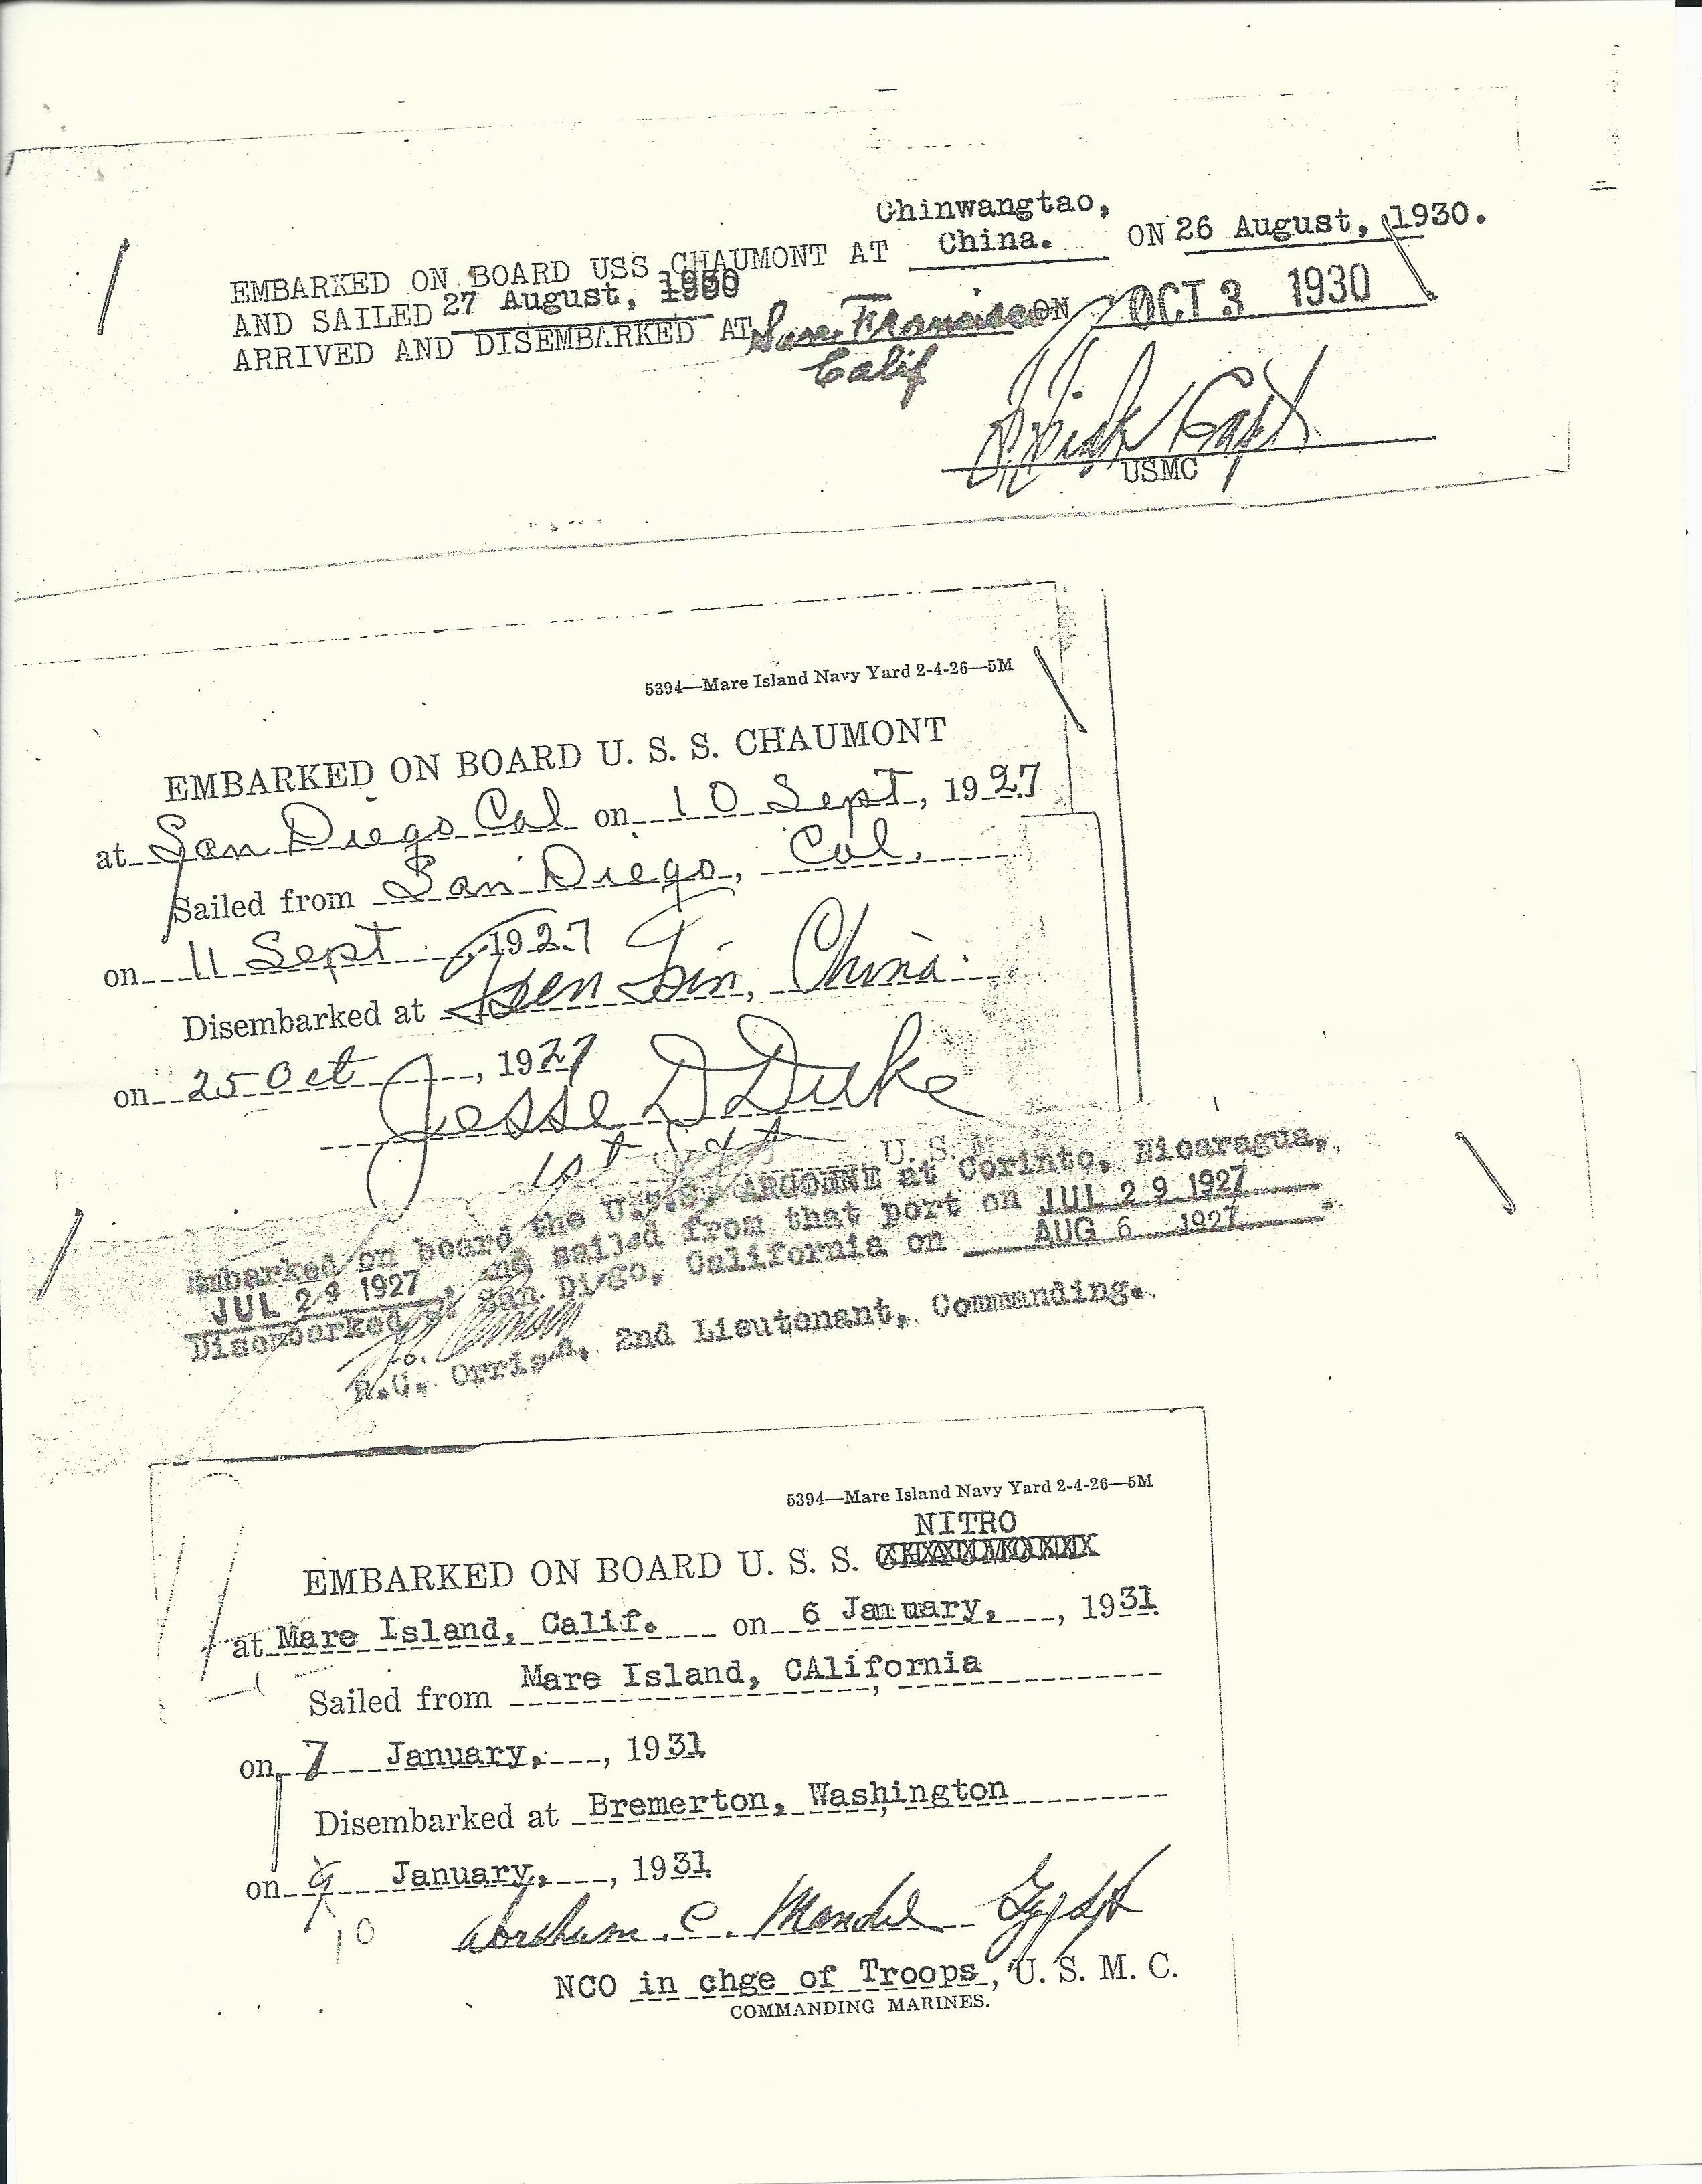 Chinwangtao,
EMBARKED ON BOARD USS CHAUMONT AT China. ON 26 August, 1930.
AND SAILED 27 August, 1930
ARRIVED AND DISEMBARKED AT San Francisco ON OCT 3 1930
Calif
Capt
USMC
5394—Mare Island Navy Yard 2-4-26—5M
EMBARKED ON BOARD U. S. S. CHAUMONT
at San Diego Cal on 10 Sept, 1927
Sailed from San Diego, Cal.
on 11 Sept, 1927
Disembarked at Tsen Tsin, China.
on 25 Oct, 1927
Jesse D Duke
1st Sgt U. S. M.
Embarked on board the U.S.S. ARGONNE at Corinto, Nicaragua,
JUL 29 1927, and sailed from that port on JUL 29 1927
Disembarked at San Diego, California on AUG 6 1927.
R.C. Orrison, 2nd Lieutenant, Commanding.
5394—Mare Island Navy Yard 2-4-26—5M
NITRO
EMBARKED ON BOARD U. S. S. CHAUMONT
at Mare Island, Calif. on 6 January, , 1931
Sailed from Mare Island, CAlifornia
on 7 January, , 1931
Disembarked at Bremerton, Washington
on 9 January, , 1931
10
Abraham C. Mandel Gy Sgt
NCO in chge of Troops, U. S. M. C.
COMMANDING MARINES.